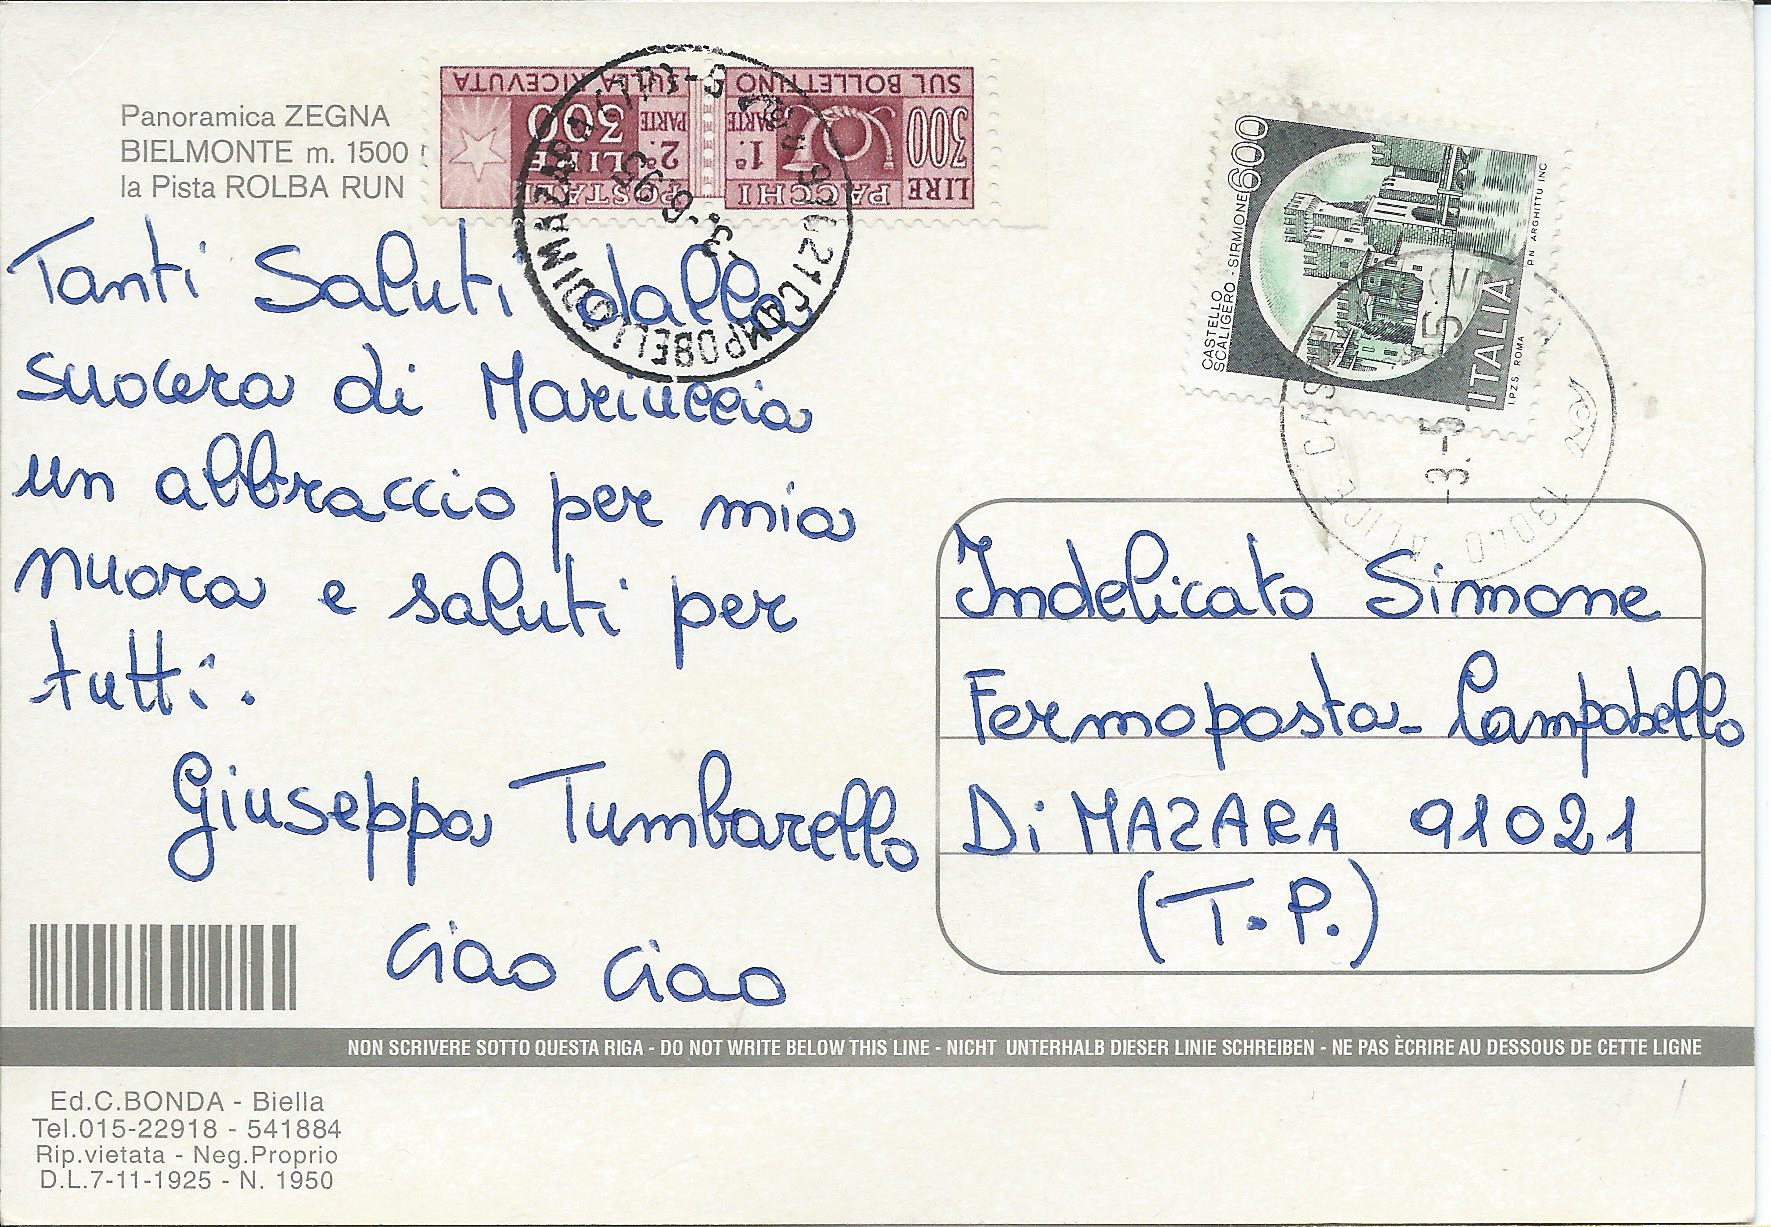 Panoramica ZEGNA
BIELMONTE m. 1500
la Pista ROLBA RUN
SUL BOLLETTINO
SULLA RICEVUTA
300
1ª PARTE
LIRE
PACCHI
2ª PARTE
300
LIRE
POSTALI
91021 CAMPOBELLO DI MAZARA
-3.6.95
CASTELLO
SCALIGERO - SIRMIONE 600
ITALIA
I.P.Z.S. ROMA
P.N. ARGHITTU INC.
13040 ALICE CAST
-3-5
Tanti Saluti dalla
suocera di Mariuccia
un abbraccio per mia
nuora e saluti per
tutti.
Giuseppa Tumbarello
ciao ciao
Indelicato Simone
Fermoposta - Campobello
Di MAZARA 91021
(T.P.)
NON SCRIVERE SOTTO QUESTA RIGA - DO NOT WRITE BELOW THIS LINE - NICHT UNTERHALB DIESER LINIE SCHREIBEN - NE PAS ÈCRIRE AU DESSOUS DE CETTE LIGNE
Ed.C.BONDA - Biella
Tel.015-22918 - 541884
Rip.vietata - Neg.Proprio
D.L.7-11-1925 - N. 1950